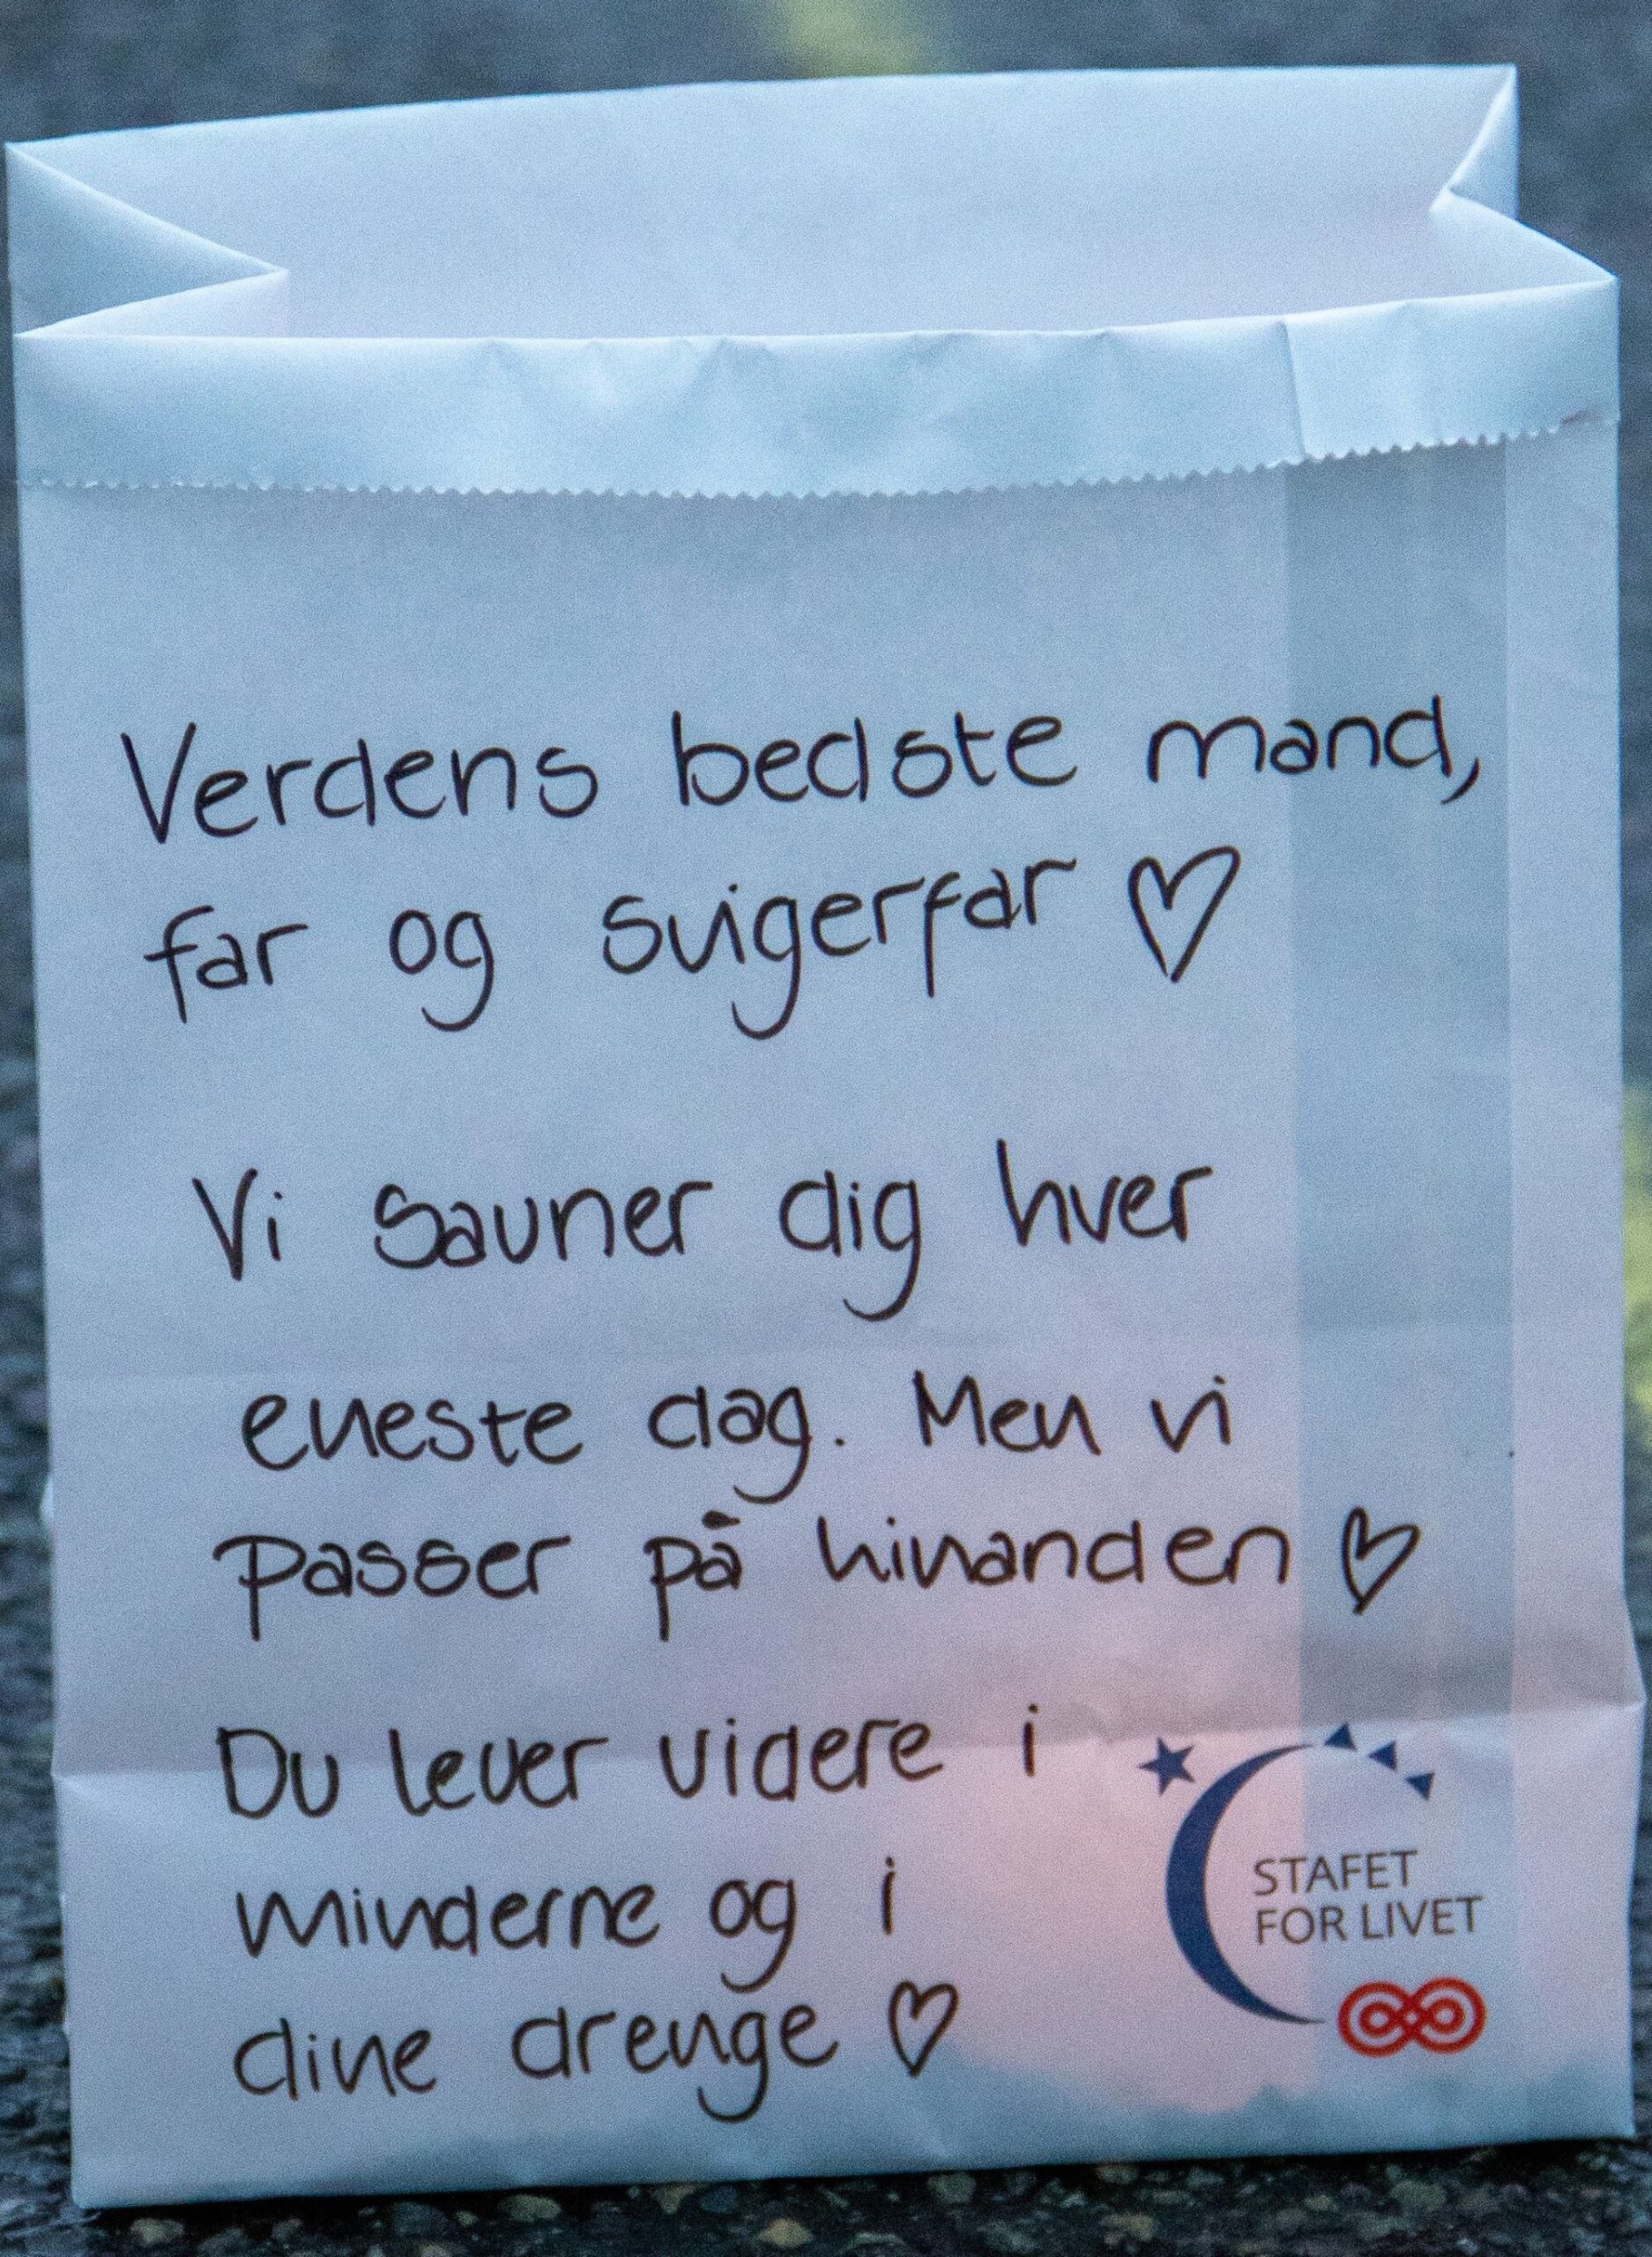 Verdens bedste mand,
far og svigerfar ♡
Vi savner dig hver
eneste dag. Men vi
passer på hinanden ♡
Du lever videre i
minderne og i
dine drenge ♡
STAFET
FOR LIVET